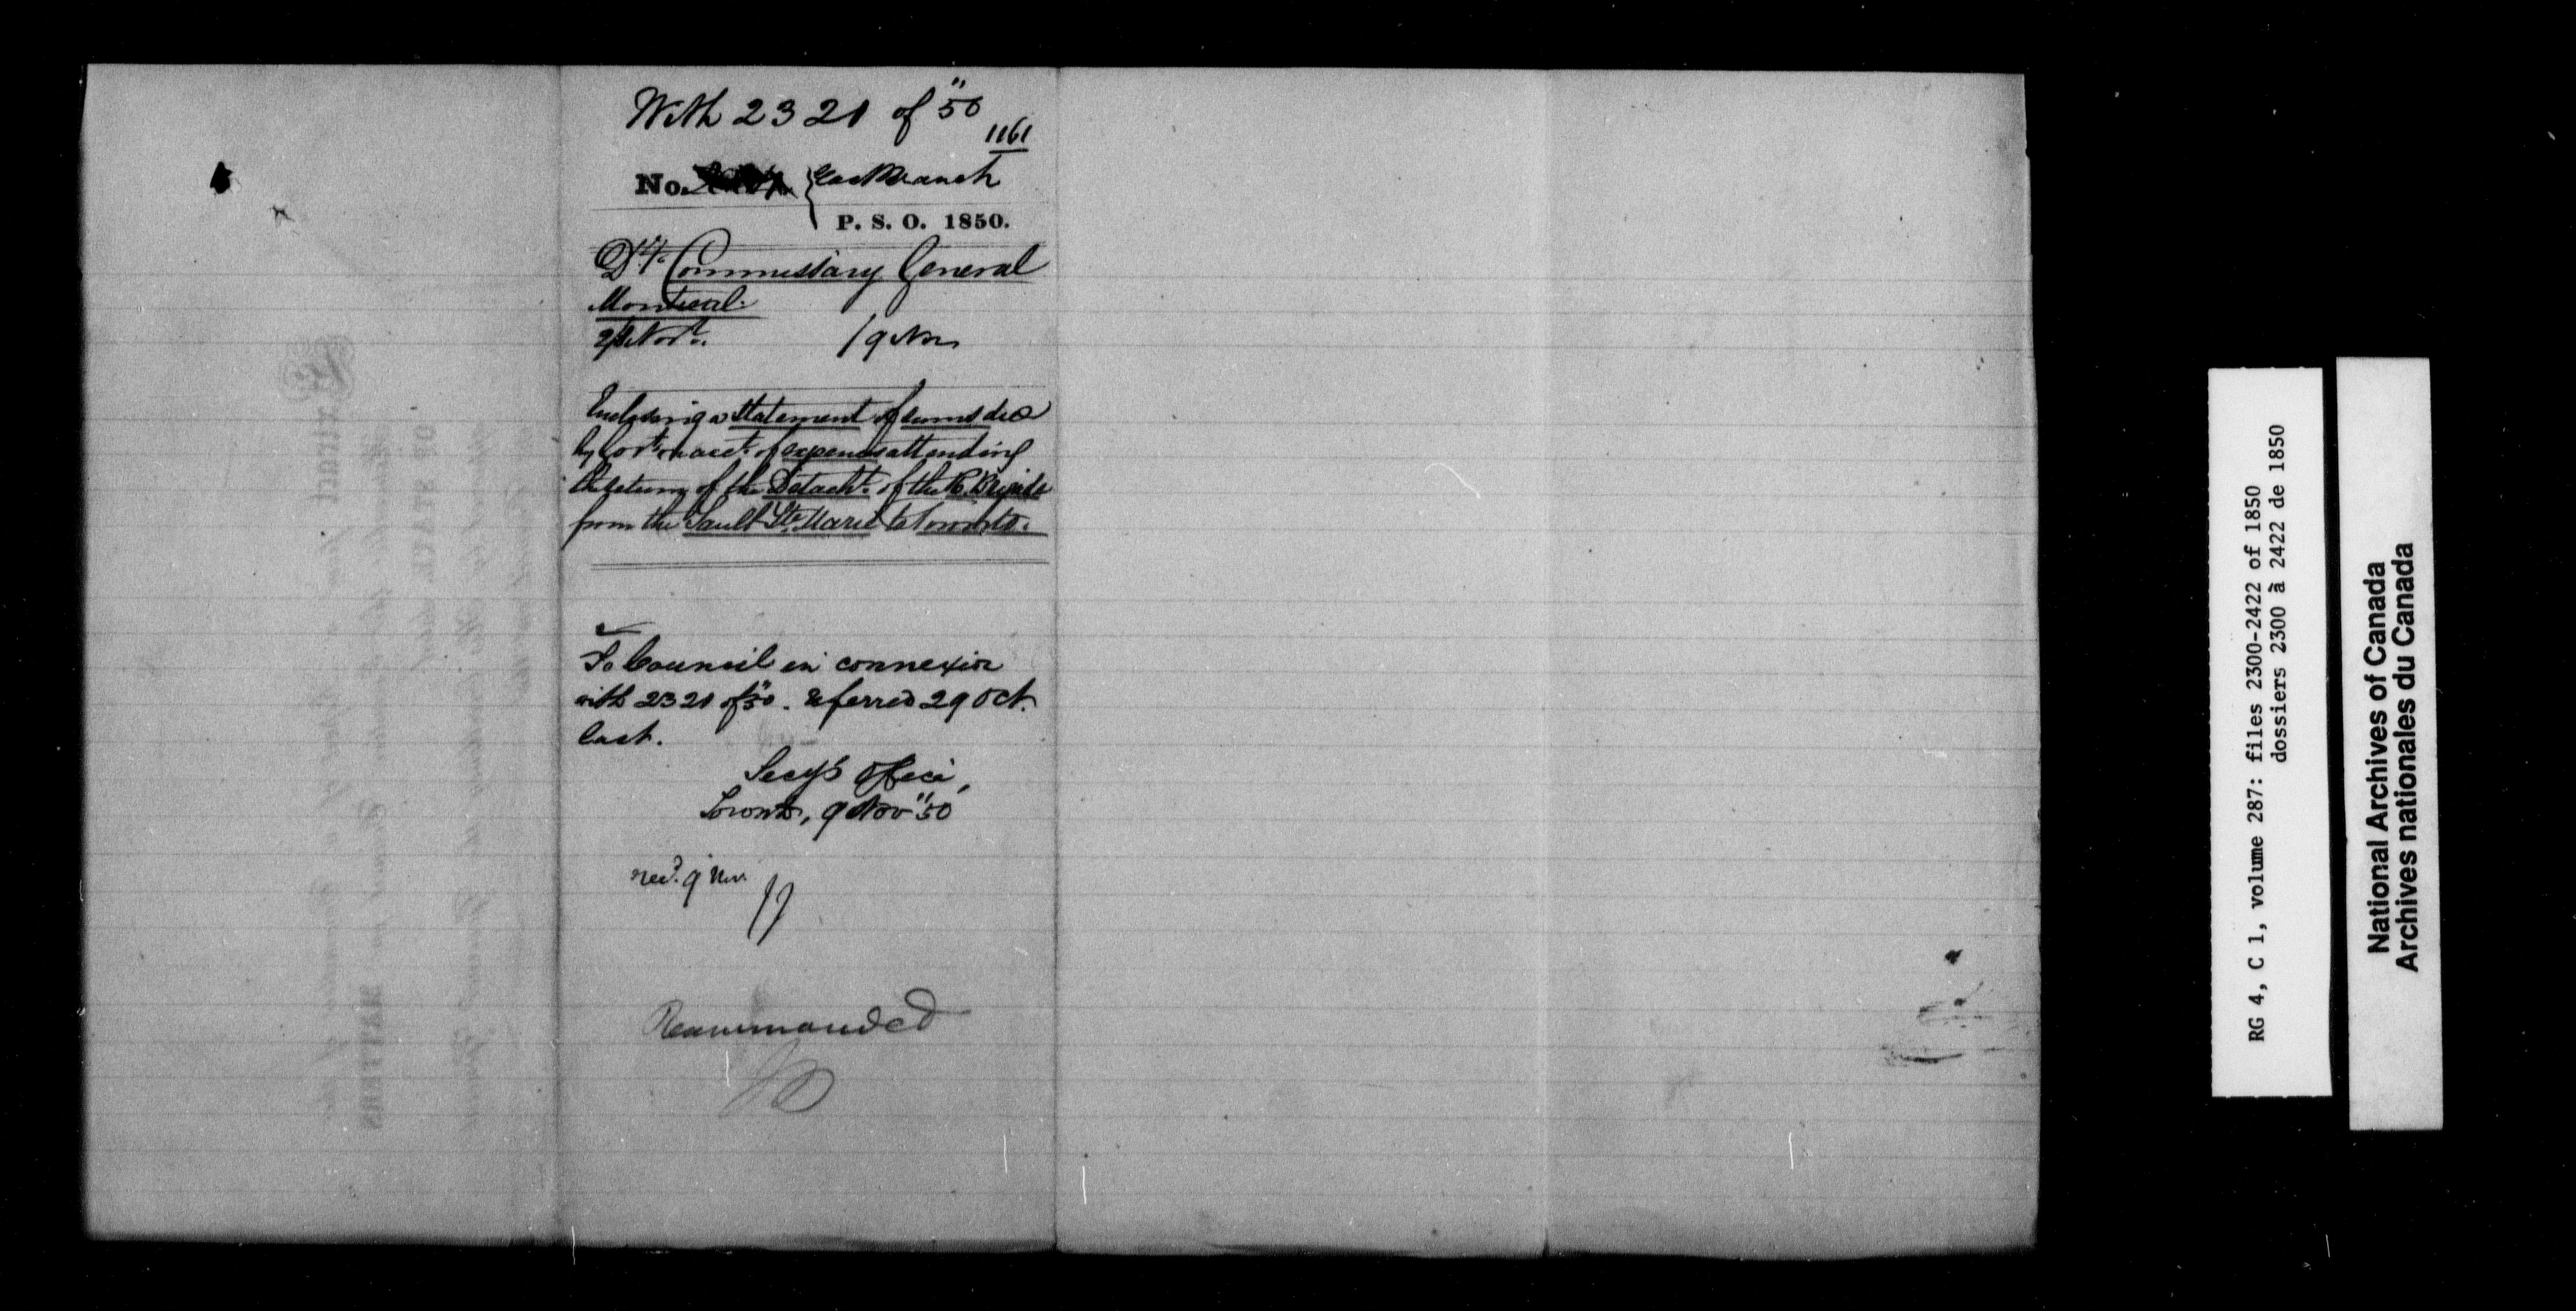 With 2321 of "50
1161
No. East Branch
P. S. O. 1850.
Dy. Commissary General
Montreal.
Novr. 19 Nov
Enclosing a Statement of sums due
by Govt. on acct. of expenses attending
the return of the Detacht. of the R. Brigade
from the Sault Ste. Marie to Toronto.
To Council in connexion
with 2321 of "50. referred 29 Oct.
last.
Secy's Office,
Toronto, 9 Nov "50
recd. 9 Nov.
Recommended
RG 4, C 1, volume 287: files 2300-2422 of 1850
dossiers 2300 à 2422 de 1850
National Archives of Canada
Archives nationales du Canada